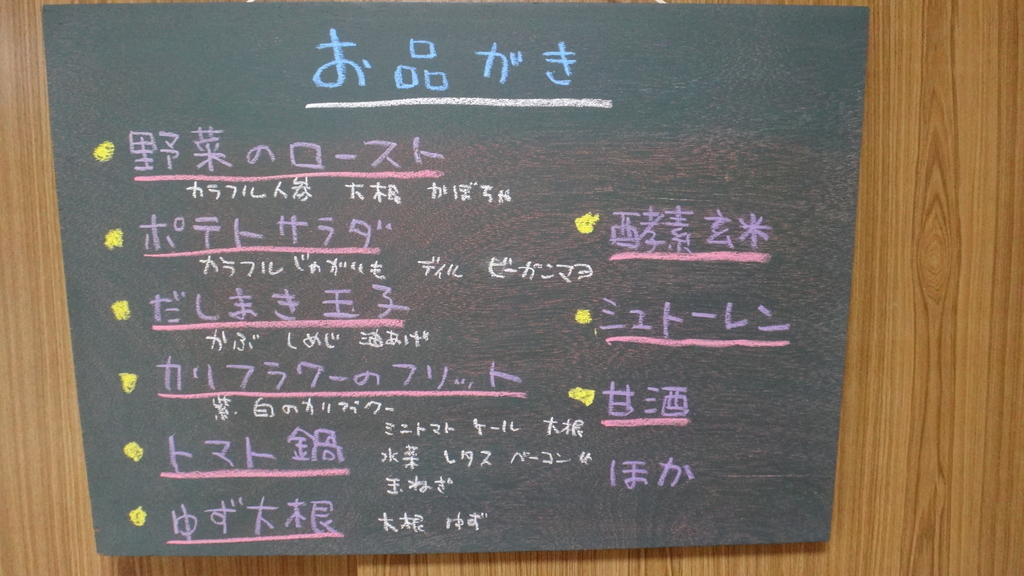 お品がき
野菜のロースト
カラフル人参 大根 かぼちゃ
ポテトサラダ
カラフルじゃがいも ディル ビーガンマヨ
だしまき玉子
かぶ しめじ 油あげ
カリフラワーのフリット
紫・白のカリフラワー
トマト鍋
ミニトマト ケール 大根
水菜 レタス ベーコン
玉ねぎ
ゆず大根
大根 ゆず
酵素玄米
シュトーレン
甘酒
ほか